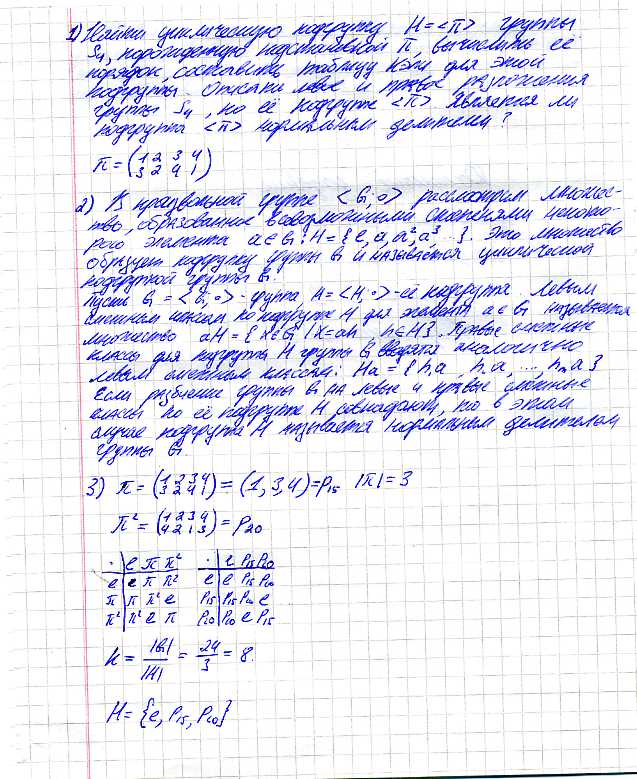 1) Найти циклическую подгруппу H=<π> группы
S₄, порожденную подстановкой π, вычислить её
порядок, составить таблицу Кэли для этой
подгруппы. Описать левое и правое разложения
группы S₄, по её подгруппе <π>. Является ли
подгруппа <π> нормальным делителем?
π=(1 2 3 4 / 3 2 4 1)
2) В произвольной группе <G,∘> рассмотрим множес-
тво, образованное всевозможными степенями некото-
рого элемента a∈G: H={e,a,a²,a³ }. Это множество
образует подгруппу группы G и называется циклической
подгруппой группы G.
Пусть G=<G,∘>-группа, H=<H,∘>-её подгруппа. Левым
смежным классом по подгруппе H для элемента a∈G называется
множество aH={x∈G | x=ah, h∈H}. Правые смежные
классы для подгруппы H группы G вводятся аналогично
левым смежным классам: Ha={h₁a, h₂a, ..., hₙa}
Если разбиение группы G на левые и правые смежные
классы по её подгруппе H совпадают, то в этом
случае подгруппа H называется нормальным делителем
группы G.
3) π=(1 2 3 4 / 3 2 4 1)=(1,3,4)=P₁₅ |π|=3
π²=(1 2 3 4 / 4 2 1 3)=P₂₀
· | e π π² · | e P₁₅ P₂₀
e | e π π² e | e P₁₅ P₂₀
π | π π² e P₁₅ | P₁₅ P₂₀ e
π² | π² e π P₂₀ | P₂₀ e P₁₅
k = |G|/|H| = 24/3 = 8.
H={e, P₁₅, P₂₀}